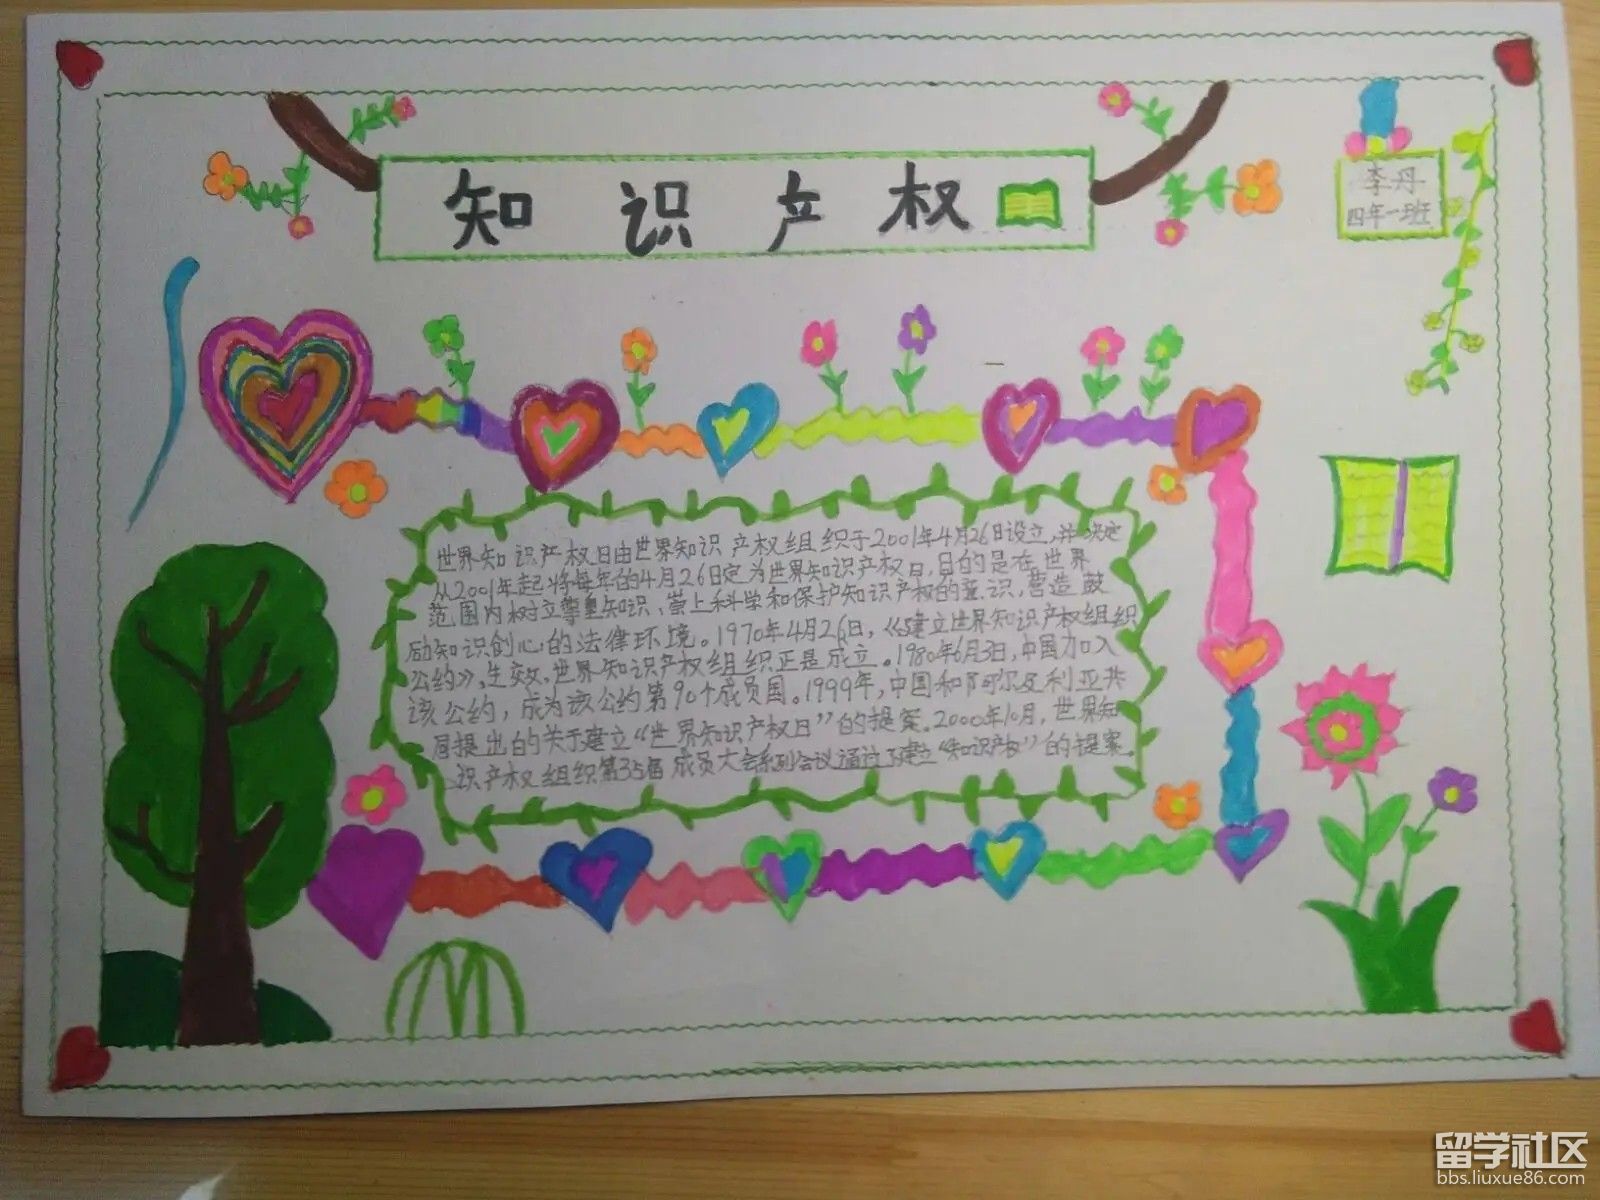 知识产权
李丹
四年一班
世界知识产权日由世界知识产权组织于2001年4月26日设立,并决定
从2001年起将每年的4月26日定为世界知识产权日,目的是在世界
范围内树立尊重知识、崇上科学和保护知识产权的意识,营造鼓
励知识创心的法律环境。1970年4月26日,《建立世界知识产权组织
公约》,生效。世界知识产权组织正是成立。1980年6月3日,中国加入
该公约,成为该公约第90个成员国。1999年,中国和阿尔及利亚共
同提出的关于建立“世界知识产权日”的提案。2000年10月,世界知
识产权组织第35届成员大会系列会议通过了建立“知识产权”的提案。
留学社区
bbs.liuxue86.com